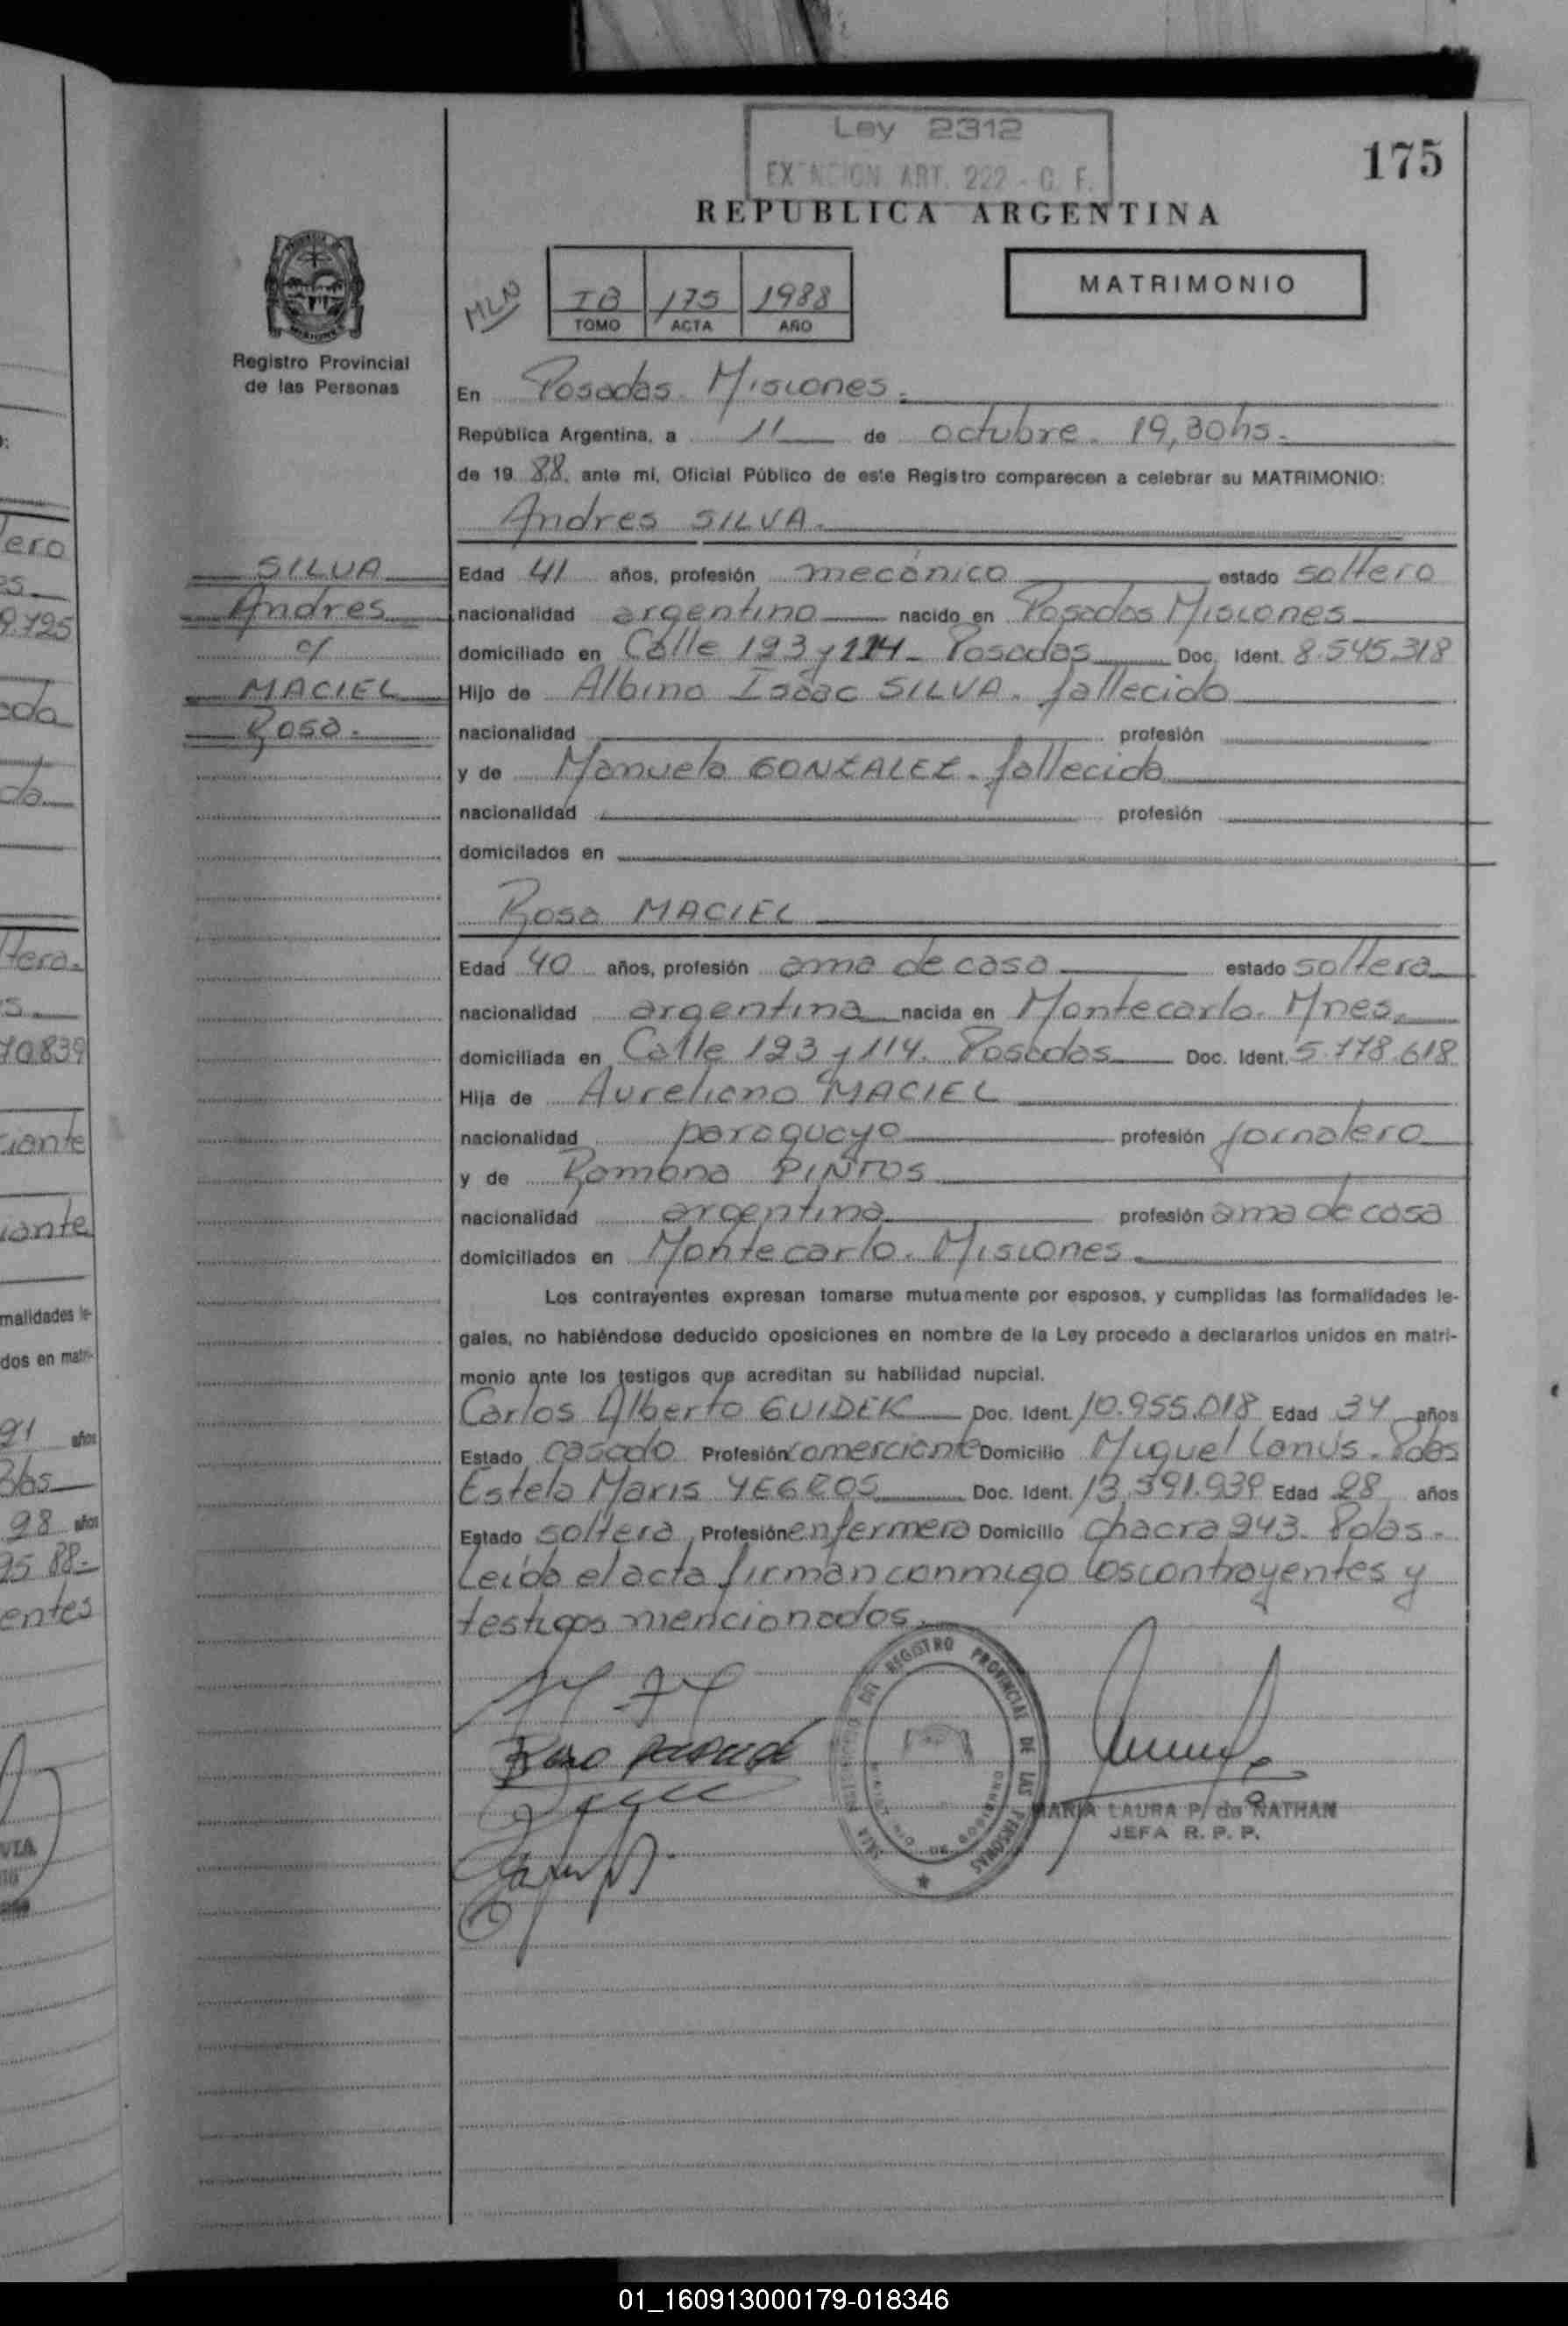 Ley 2312
EXENCION ART. 222 - C. F.
175
REPUBLICA ARGENTINA
MATRIMONIO
IB 175 1988
TOMO ACTA AÑO
Registro Provincial
de las Personas
En Posadas. Misiones.
República Argentina, a 11 de octubre. 19,30hs.
de 1988. ante mí, Oficial Público de este Registro comparecen a celebrar su MATRIMONIO:
Andres SILVA.
SILVA
Andres
c/
MACIEL
Rosa.
Edad 41 años, profesión mecánico estado soltero
nacionalidad argentino nacido en Posadas Misiones
domiciliado en Calle 123 y 114. Posadas Doc. Ident. 8.545.318
Hijo de Albino Isaac SILVA. fallecido
nacionalidad profesión
y de Manuela GONZALEZ. fallecida
nacionalidad profesión
domicilados en
Rosa MACIEL
Edad 40 años, profesión ama de casa estado soltera
nacionalidad argentina nacida en Montecarlo. Mnes.
domiciliada en Calle 123 y 114. Posadas Doc. Ident. 5.778.618
Hija de Aureliano MACIEL
nacionalidad paraguayo profesión jornalero
y de Ramona PINTOS
nacionalidad argentina profesión ama de casa
domiciliados en Montecarlo. Misiones.
Los contrayentes expresan tomarse mutuamente por esposos, y cumplidas las formalidades le-
gales, no habiéndose deducido oposiciones en nombre de la Ley procedo a declararlos unidos en matri-
monio ante los testigos que acreditan su habilidad nupcial.
Carlos Alberto GUIDEK Doc. Ident. 10.955.018 Edad 34 años
Estado casado Profesión comerciante Domicilio Miguel Lanús. Pdas
Estela Maris YEGROS Doc. Ident. 13.591.939 Edad 28 años
Estado soltera Profesión enfermera Domicilio chacra 243. Pdas.
Leída el acta firman conmigo los contrayentes y
testigos mencionados.
REGISTRO PROVINCIAL DE LAS PERSONAS
MARIA LAURA P. de NATHAN
JEFA R. P. P.
ero
9.725
tera.
70839
iante
iante
malidades le-
dos en matri-
91 años
28 años
88-
entes
01_160913000179-018346